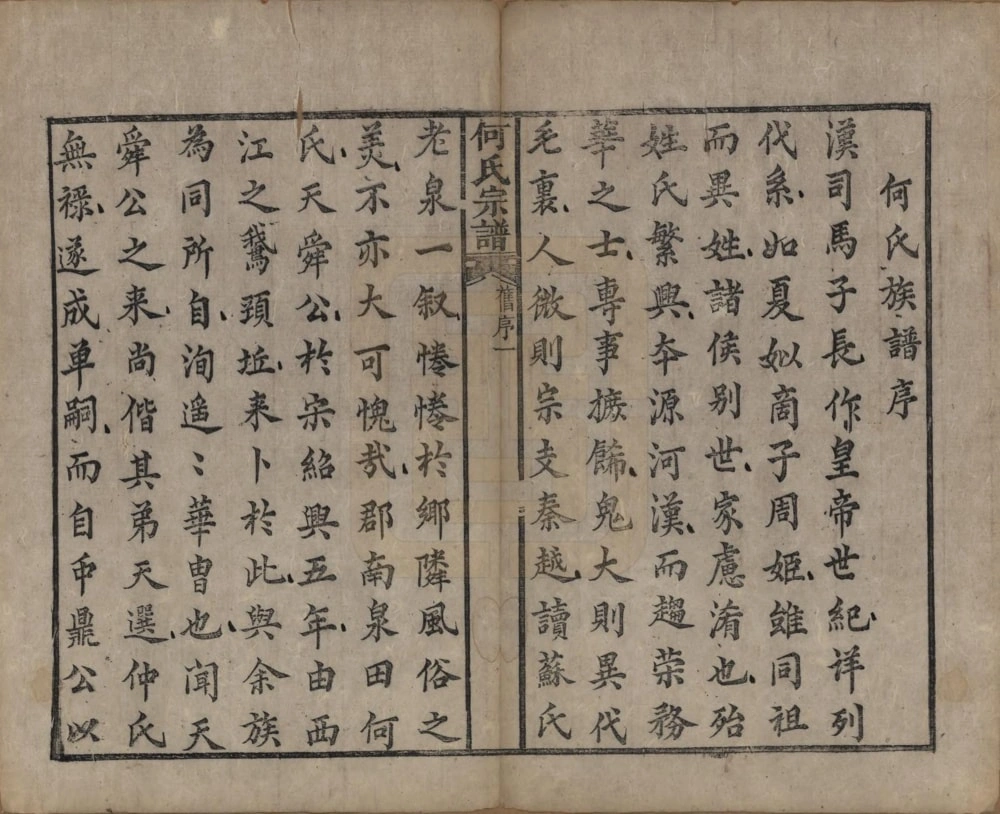 何氏族譜序
漢司馬子長作皇帝世紀詳列
代系如夏姒啇子周姬雖同祖
而異姓諸侯别世家慮淆也殆
姓氏繁興夲源河漢而趨荣務
華之士專事摭餙鬼大則異代
毛裏人微則宗支秦越讀蘇氏
何氏宗譜 舊序一
老泉一叙惓惓於鄉隣風俗之
羙不亦大可愧㢤郡南泉田何
氏天舜公於宗紹興五年由西
江之鵝頸坵来卜於此與余族
為同所自洵遥〻華曺也闻天
舜公之来尚偕其弟天選仲氏
無禄遂成单嗣而自𠂔鼎公以